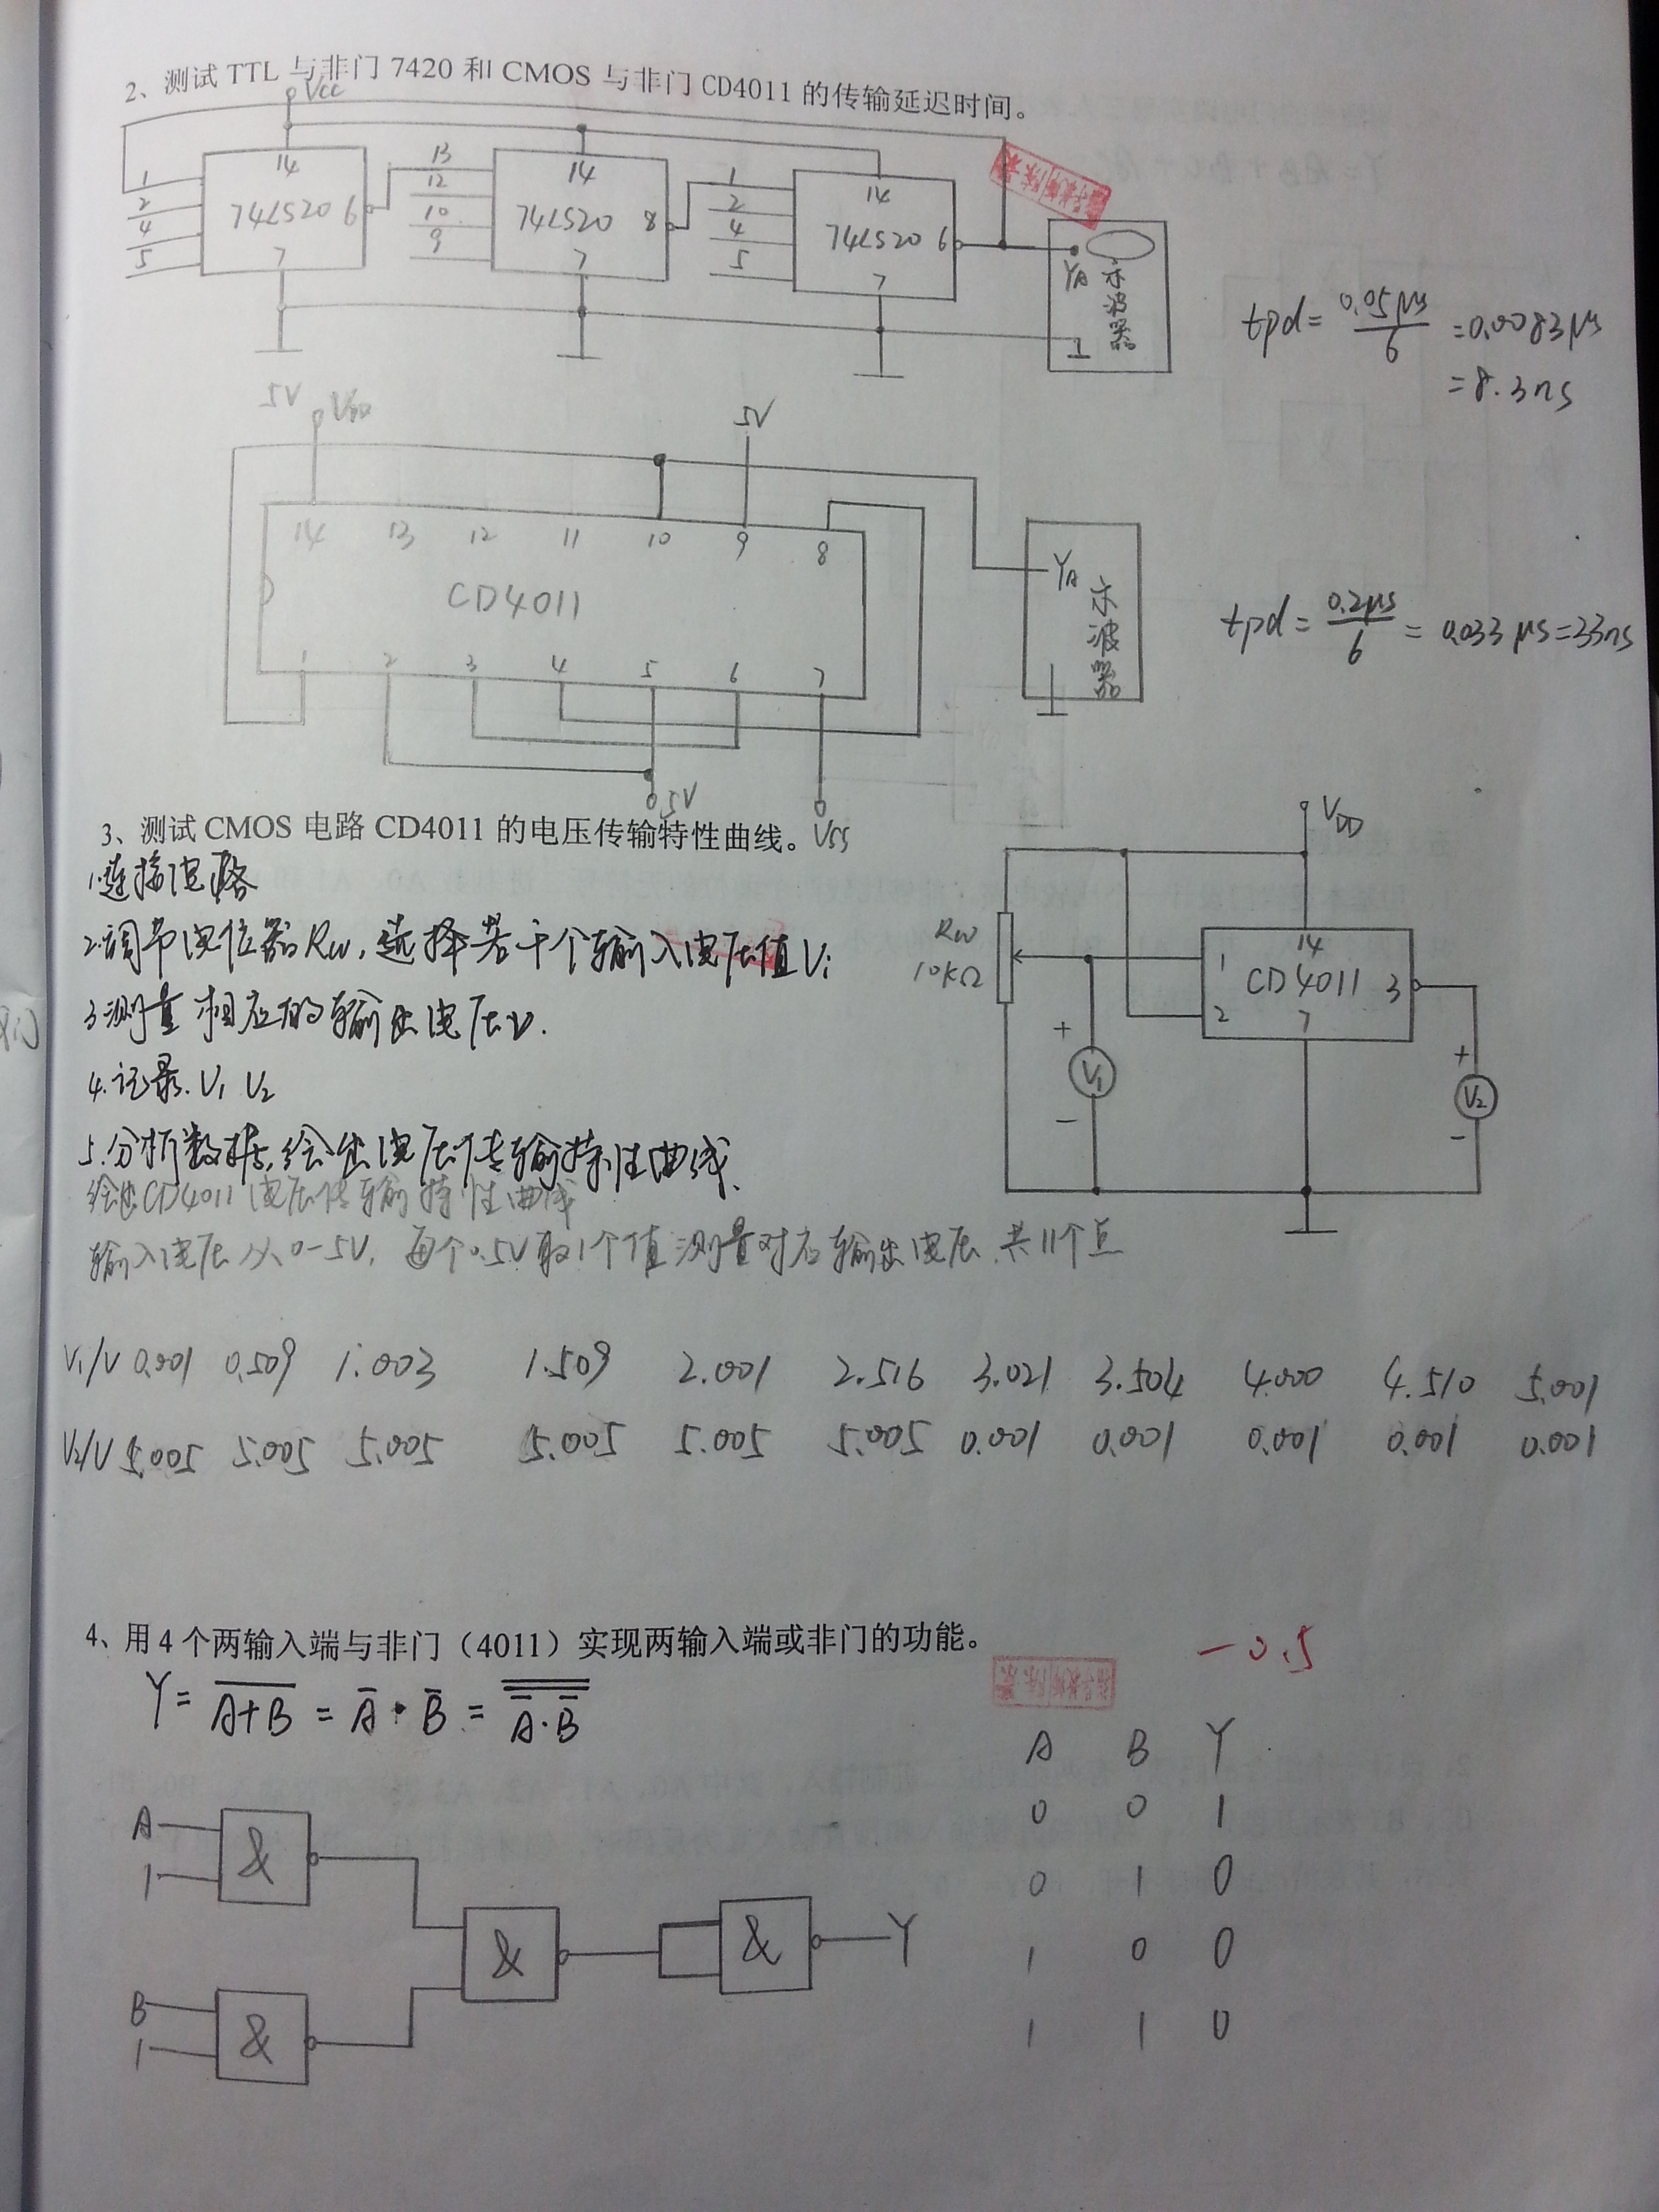 2、测试 TTL 与非门 7420 和 CMOS 与非门 CD4011 的传输延迟时间。
Vcc
1 2 4 5 14 74LS20 6 7
13 12 10 9 14 74LS20 8 7
1 2 4 5 14 74LS20 6 7
YA 示波器
tpd = 0.05μs / 6 = 0.0083μs
= 8.3ns
5V VDD 5V
14 13 12 11 10 9 8
CD4011
1 2 3 4 5 6 7
YA 示波器
tpd = 0.2μs / 6 = 0.033μs = 33ns
5V VSS
3、测试 CMOS 电路 CD4011 的电压传输特性曲线。
1.连接电路
2.调节电位器Rw,选择若干个输入电压值Vi
3.测量相应的输出电压V.
4.记录.V1 V2
5.分析数据,绘出电压传输特性曲线.
绘出CD4011电压传输特性曲线
输入电压从0-5V,每个0.5V取1个值测量对应输出电压.共11个点
VDD
Rw
10KΩ
14
1 CD4011 3
2 7
+ V1 -
+ V2 -
V1/V 0.001 0.509 1.003 1.509 2.001 2.516 3.021 3.504 4.000 4.510 5.001
V2/V 5.005 5.005 5.005 5.005 5.005 5.005 0.001 0.001 0.001 0.001 0.001
4、用 4 个两输入端与非门（4011）实现两输入端或非门的功能。
-0.5
Y = \overline{A+B} = \overline{A}·\overline{B} = \overline{\overline{\overline{A}·\overline{B}}}
A 1 &
B 1 &
& & Y
A B Y
0 0 1
0 1 0
1 0 0
1 1 0